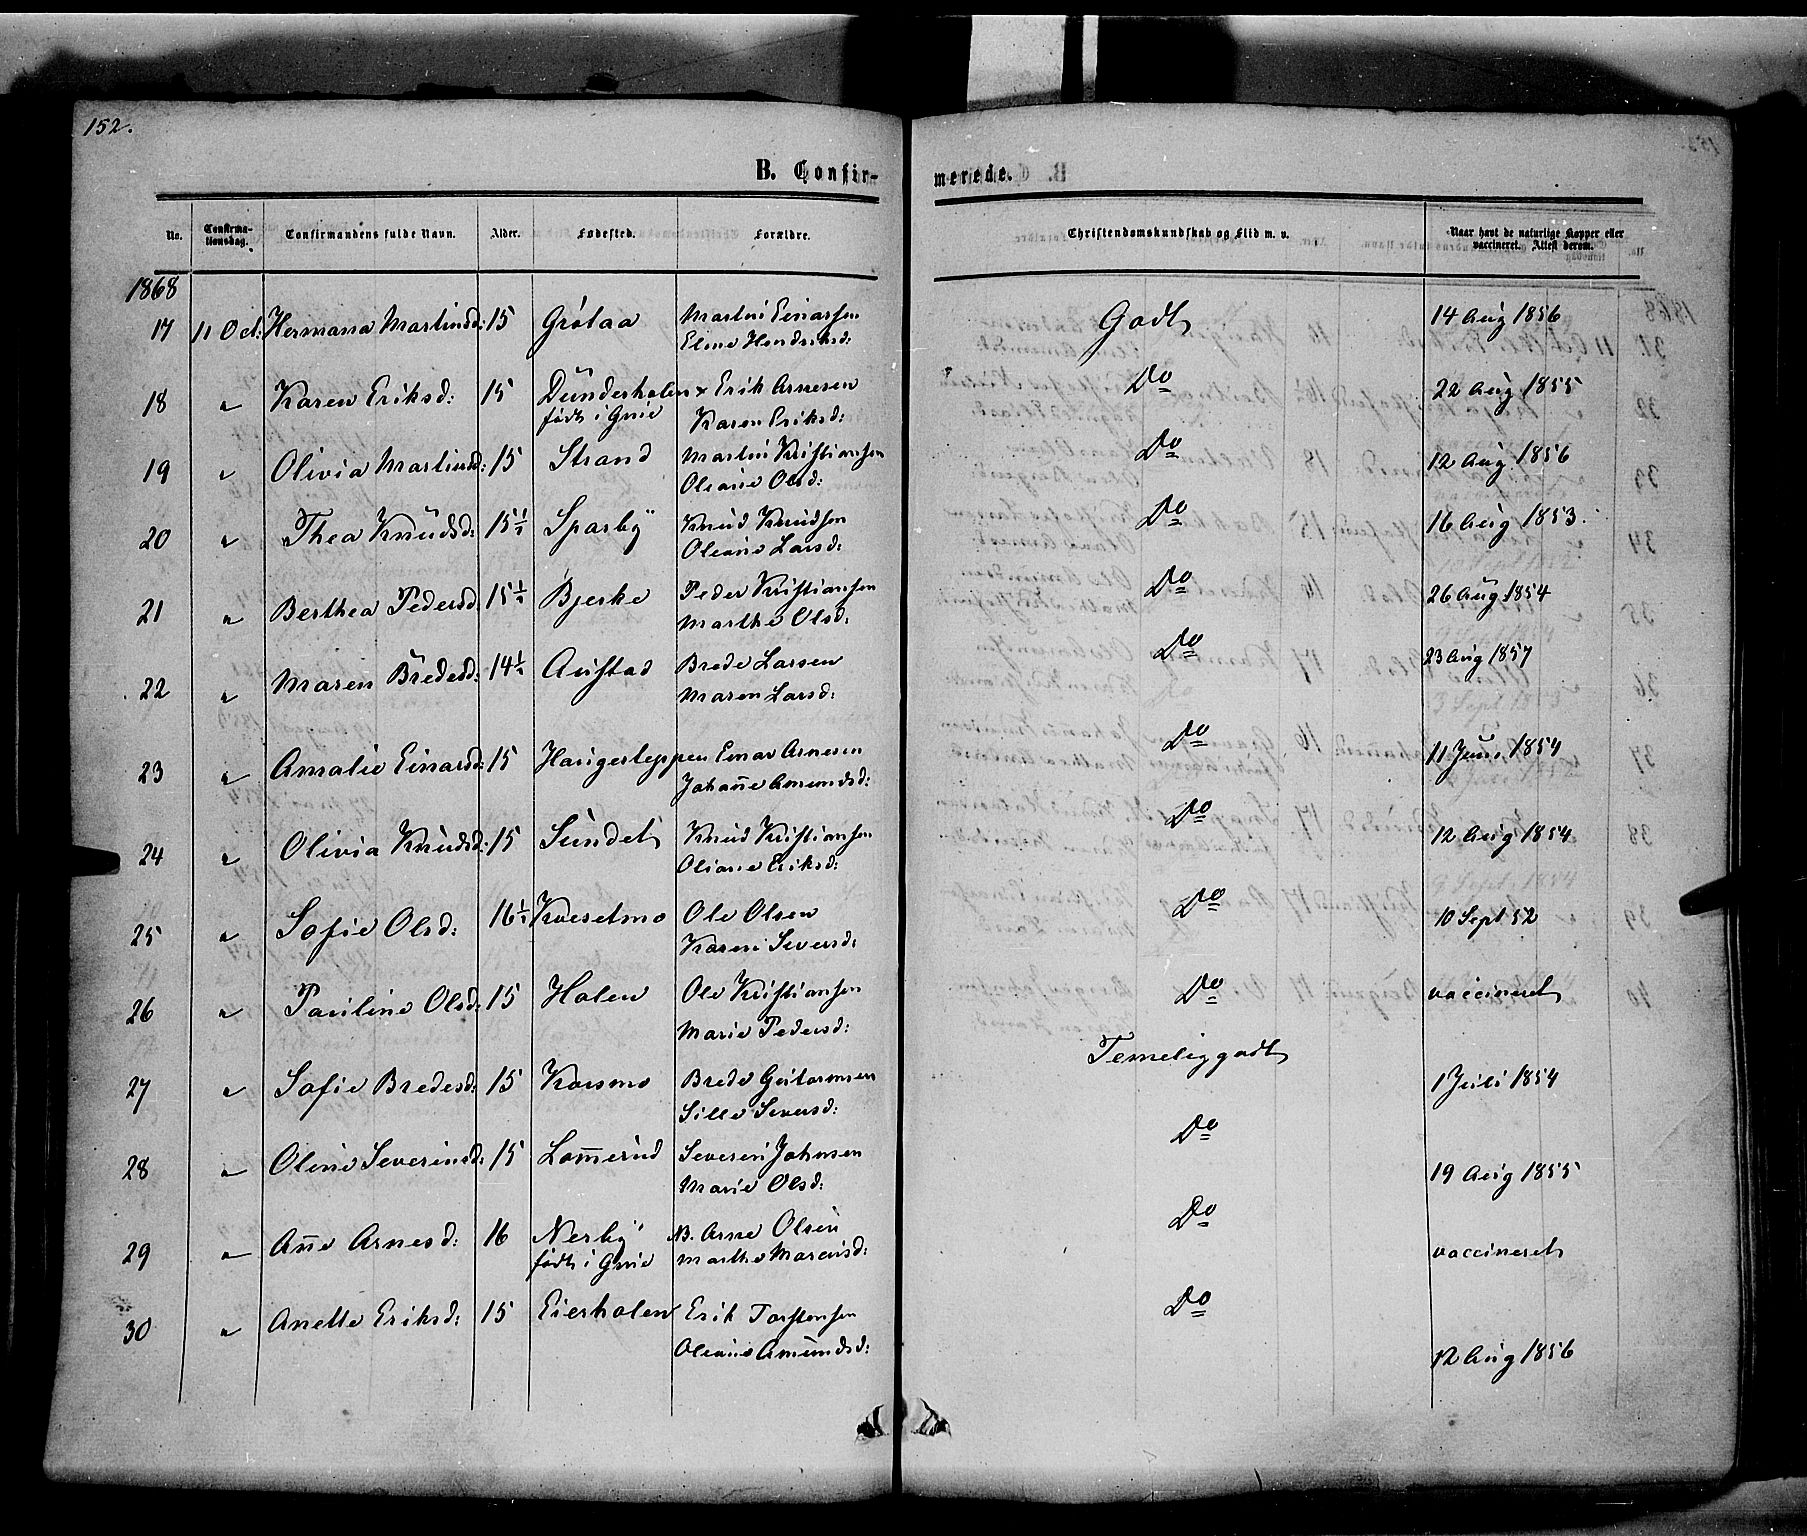 152.
B. Confirmerede.
No. Confirmationsdag. Confirmandens fulde Navn. Alder. Fødested. Forældre. Christendomskundskab og Flid m. v. Naar havt de naturlige Kopper eller vaccineret. Attest derom.
1868
17 11 Oct: Hermana Martinsd: 15 Grøtaa Martin Einarsen Godt 14 Aug 1856
Eline Hendriksd:
18 " Karen Eriksd: 15 Dunderholen + Erik Arnesen Do 22 Aug 1855
født i Grue Karen Eriksd:
19 " Olivia Martinsd: 15 Strand Martin Kristiansen Do 12 Aug. 1856
Oleane Olsd:
20 " Thea Knudsd: 15½ Sparby Knud Knudsen Do 16 Aug 1853.
Oleane Larsd:
21 " Berthea Pedersd 15½ Bjerke Peder Kristiansen Do 26 Aug. 1854
Marthe Olsd:
22 " Maren Bredesd: 14½ Austad Brede Larsen Do 23 Aug 1857
Maren Larsd:
23 " Amalie Einarsd: 15 Haugerteppen Einar Arnesen Do 11 Juni 1854
Johanne Amundsd:
24 " Olivia Knudsd: 15 Sundet Knud Kristiansen Do 12 Aug 1854
Oliane Eriksd:
25 " Sofie Olsd: 16½ Kvesetmo Ole Olsen Do 10 Sept 52
Karen Siversd:
26 " Pauline Olsd: 15 Holen Ole Kristiansen Do vaccineret
Marie Pedersd:
27 " Sofie Bredesd: 15 Korsmo Brede Gutormsen Temelig godt 1 Juli 1854
Sille Siversd:
28 " Oline Severinsd: 15 Lommerud Severin Johnsen Do 19 Aug 1855
Marie Olsd:
29 " Anne Arnesd: 16 Nerby N. Arne Olsen Do vaccineret
født i Grue Marthe Marcusd:
30 " Anette Eriksd: 15 Eierholen Erik Torstensen Do 12 Aug 1856
Oleane Amundsd: